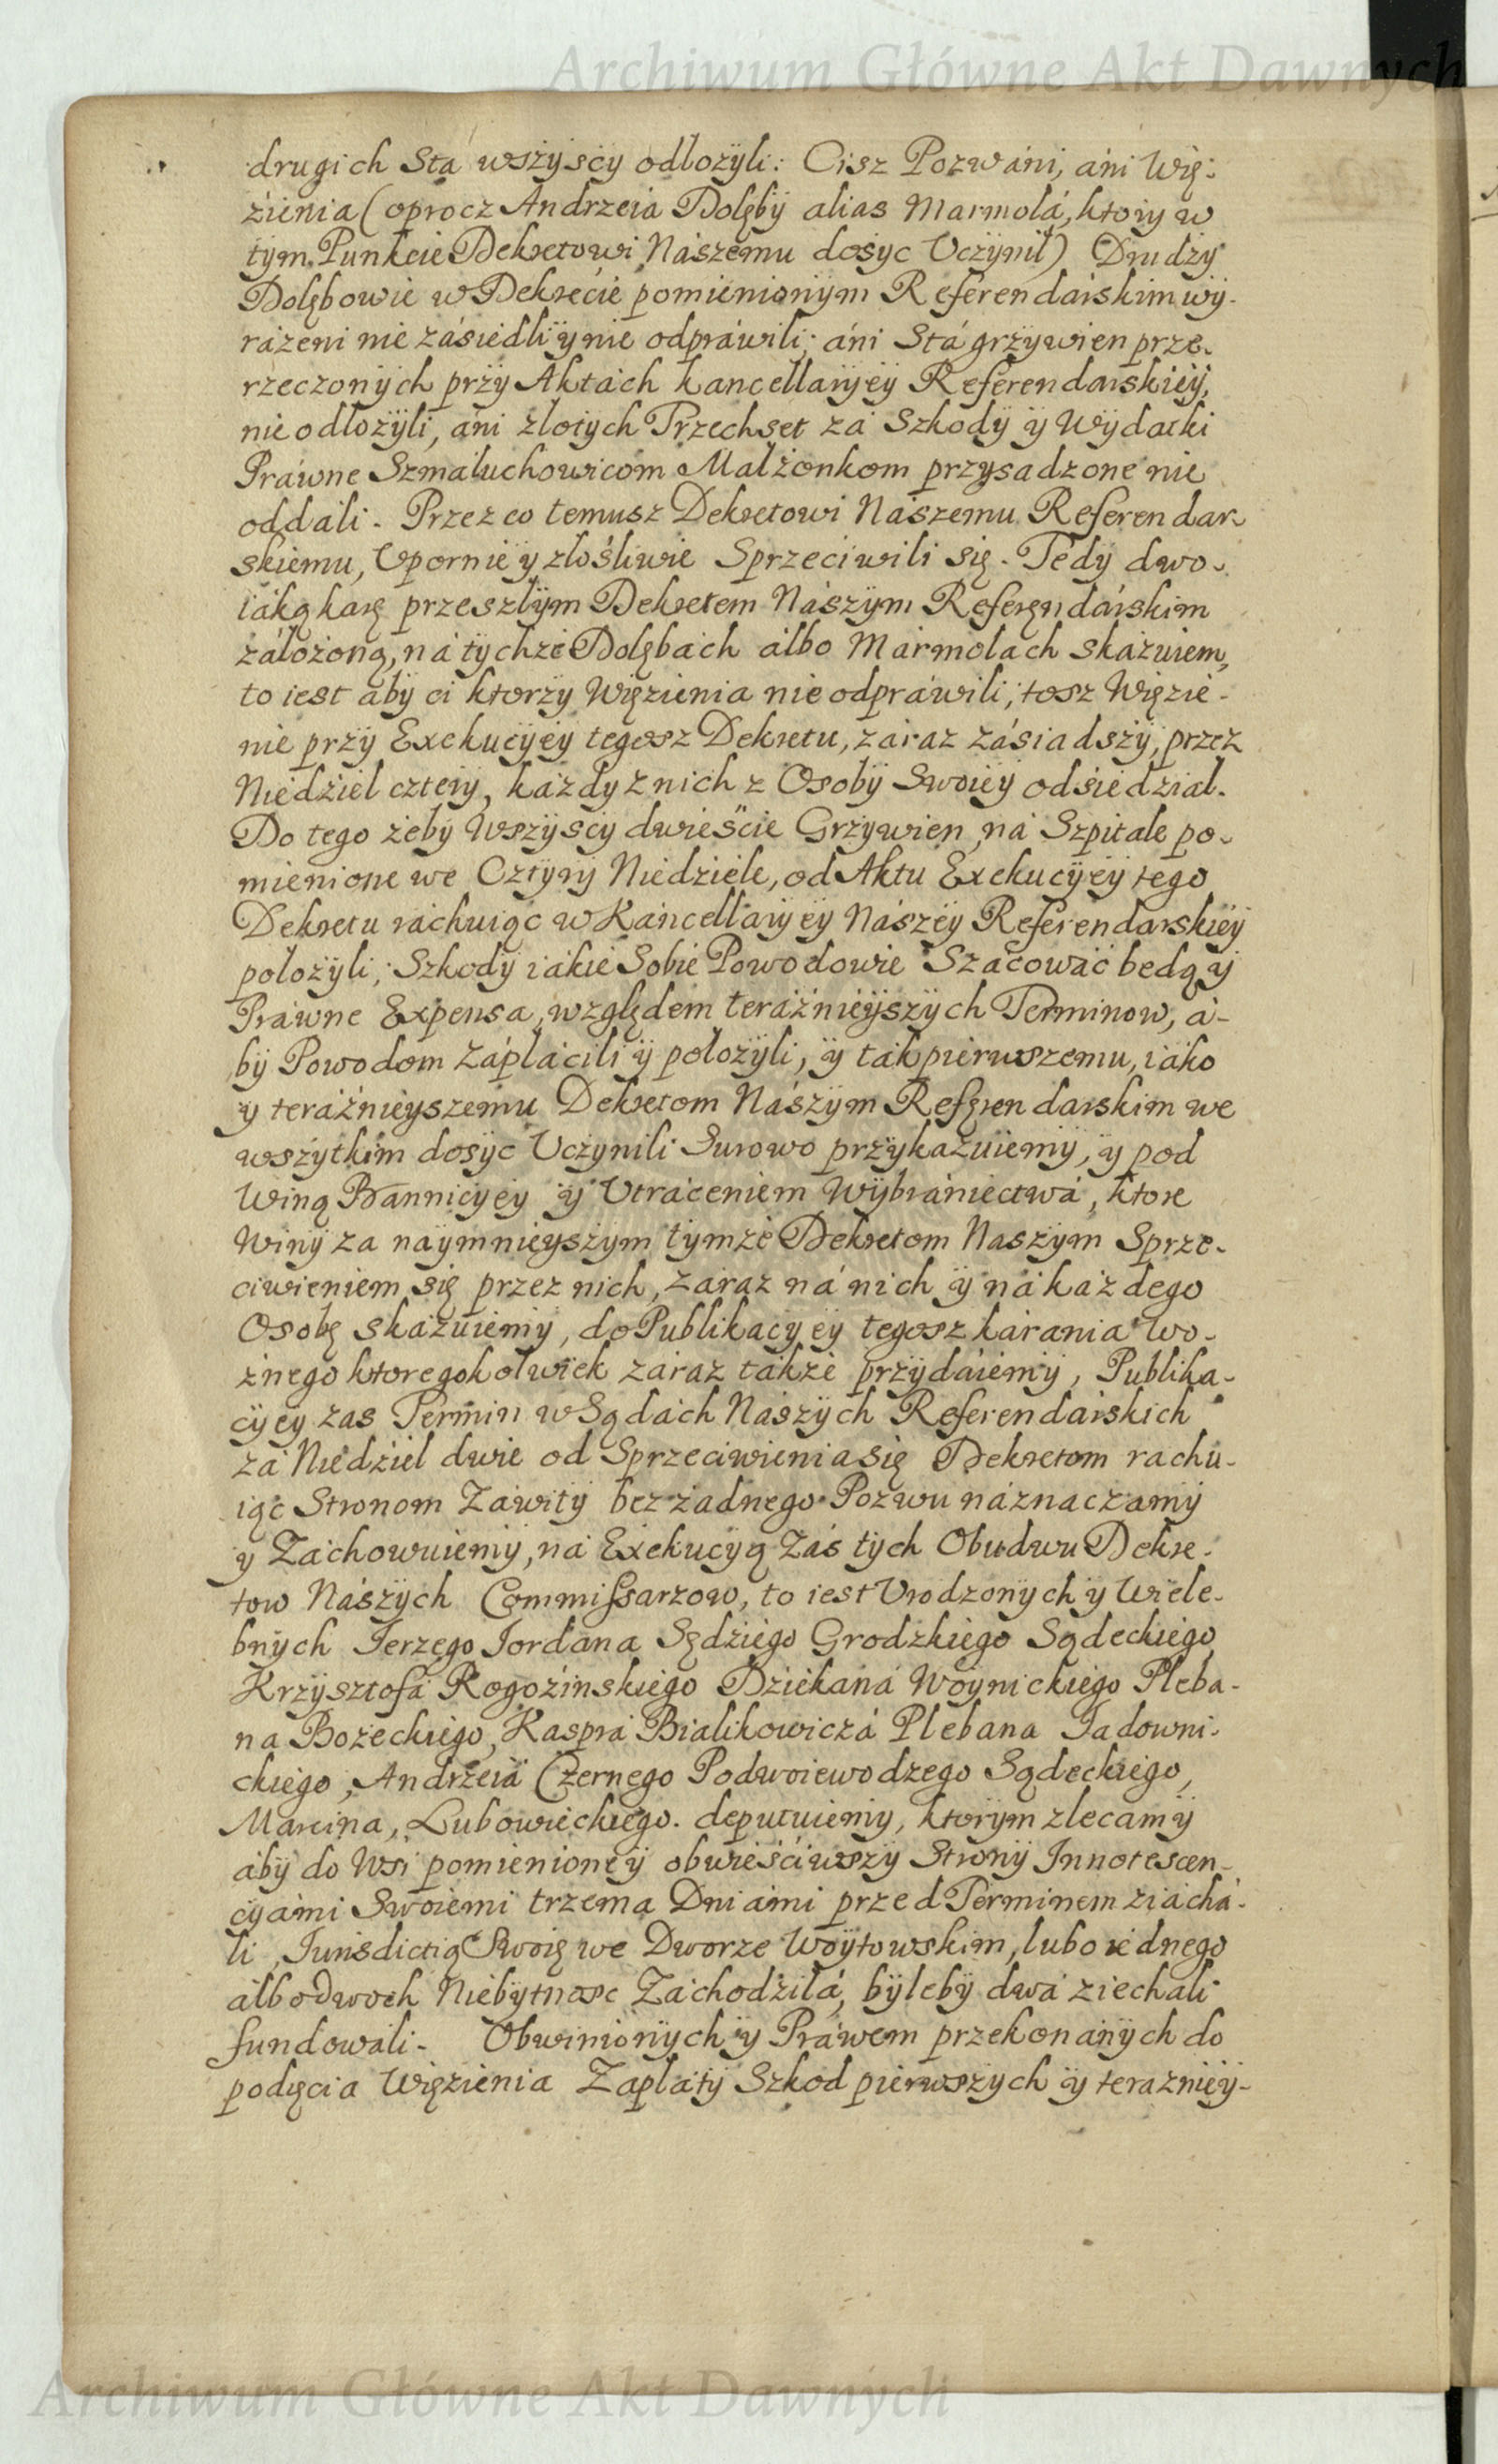 Archiwum Główne Akt Dawnych
drugich Sta wszyscy odlozÿli: Cisz Pozwáni, áni Wię:
zienia (oprocz Andrzeia Dolębÿ alias Marmolá, ktory w
tym Punkcie Dekretowi Nászemu dosyc Uczÿnił) Drudzy
Dolębowie w Dekrecie pomienionÿm Referendarskim wÿ-
rażeni nie zásiedli ÿ nie odpráwili; áni Stá grzÿwien prze-
rzeczonÿch przÿ Aktach kancellarÿeÿ Referendarskieÿ,
nie odlozÿli, áni zlotych Trzechset zá Szkodÿ ÿ Wÿdatki
Práwne Szmaluchowicom Malżonkom przysadzone nie
oddali. Przez co temusz Dekretowi Nászemu Referendar-
skiemu, Upornie ÿ zlośliwie Sprzeciwili się. Tedÿ dwo-
iáką karę przeszlÿm Dekretem Nászÿm Referendárskim
záłożoną, ná tÿchże Dolębách álbo Mármolach skazuiem,
to iest abÿ ci ktorzÿ Więzienia nie odpráwili; tosz Więzie-
nie przÿ Exekucÿeÿ tegosz Dekretu, záraz zásiadszÿ, przez
Niedziel czterÿ, kazdÿ z nich z Osobÿ Swoieÿ odsiedzial.
Do tego żebÿ Wszÿscÿ dwieście Grzÿwien, ná Szpitale po-
mienione we Cztyrÿ Niedziele, od Aktu Exekucÿeÿ tego
Dekretu ráchuiąc w Káncellarÿeÿ Nászeÿ Referendarskieÿ
polozÿli; Szkodÿ iákie Sobie Powodowie Szácowáć będą ÿ
Práwne Expensa, względem teráźnieÿszÿch Terminow, á-
bÿ Powodom Záplácili ÿ polozÿli, ÿ ták pierwszemu, iáko
ÿ teráźnieyszemu Dekretom Nászÿm Referendarskim we
wszÿtkim dosÿc Uczÿnili Surowo przÿkazuiemÿ, ÿ pod
Winą Bannicÿeÿ ÿ Utráceniem Wÿbrániectwá, ktore
Winÿ za naÿmnieÿszÿm tÿmże Dekretom Naszÿm Sprze-
ciwieniem się przez nich, záraz ná nich ÿ ná kazdego
Osobę skazuiemÿ, do Publikacÿeÿ tegosz kárania Wo-
źnego ktoregokolwiek záraz tákże przÿdáiemÿ, Publika-
cÿeÿ zas Termin w Sądach Nászÿch Referendárskich
zá Niedziel dwie od Sprzeciwienia się Dekretom rachu-
iąc Stronom Zawitÿ bez żadnego Pozwu náznaczamÿ
ÿ Záchowuiemÿ, ná Exekucÿą Zás tÿch Obudwu Dekre-
tow Nászÿch Commissarzow, to iest Urodzonÿch ÿ Wiele-
bnÿch Ierzego Iordana Sędziego Grodzkiego Sądeckiego
Krzysztofá Rogozinskiego Dziekaná Woynickiego Pleba-
na Bozeckiego, Kaspra Bialikowiczá Plebana Iadowni-
ckiego, Andrzeiá Czernego Podwoiewodzego Sądeckiego,
Marcina, Lubowieckiego. deputuiemy, ktorÿm zlecamÿ
ábÿ do Wsi pomienioneÿ obwieściwszÿ Stronÿ Innotescen-
cÿámi Swoiemi trzema Dniámi przed Terminem ziáchá-
li, Iurisdictią Swoię we Dworze Woÿtowskim, lubo iednego
álbo dwoch Niebÿtnosc Záchodziłá, bÿlebÿ dwá ziechali
fundowali. Obwinionÿch ÿ Práwem przekonánÿch do
podięcia Więzienia Zaplátÿ Szkod pierwszÿch ÿ terazniéÿ-
Archiwum Główne Akt Dawnych